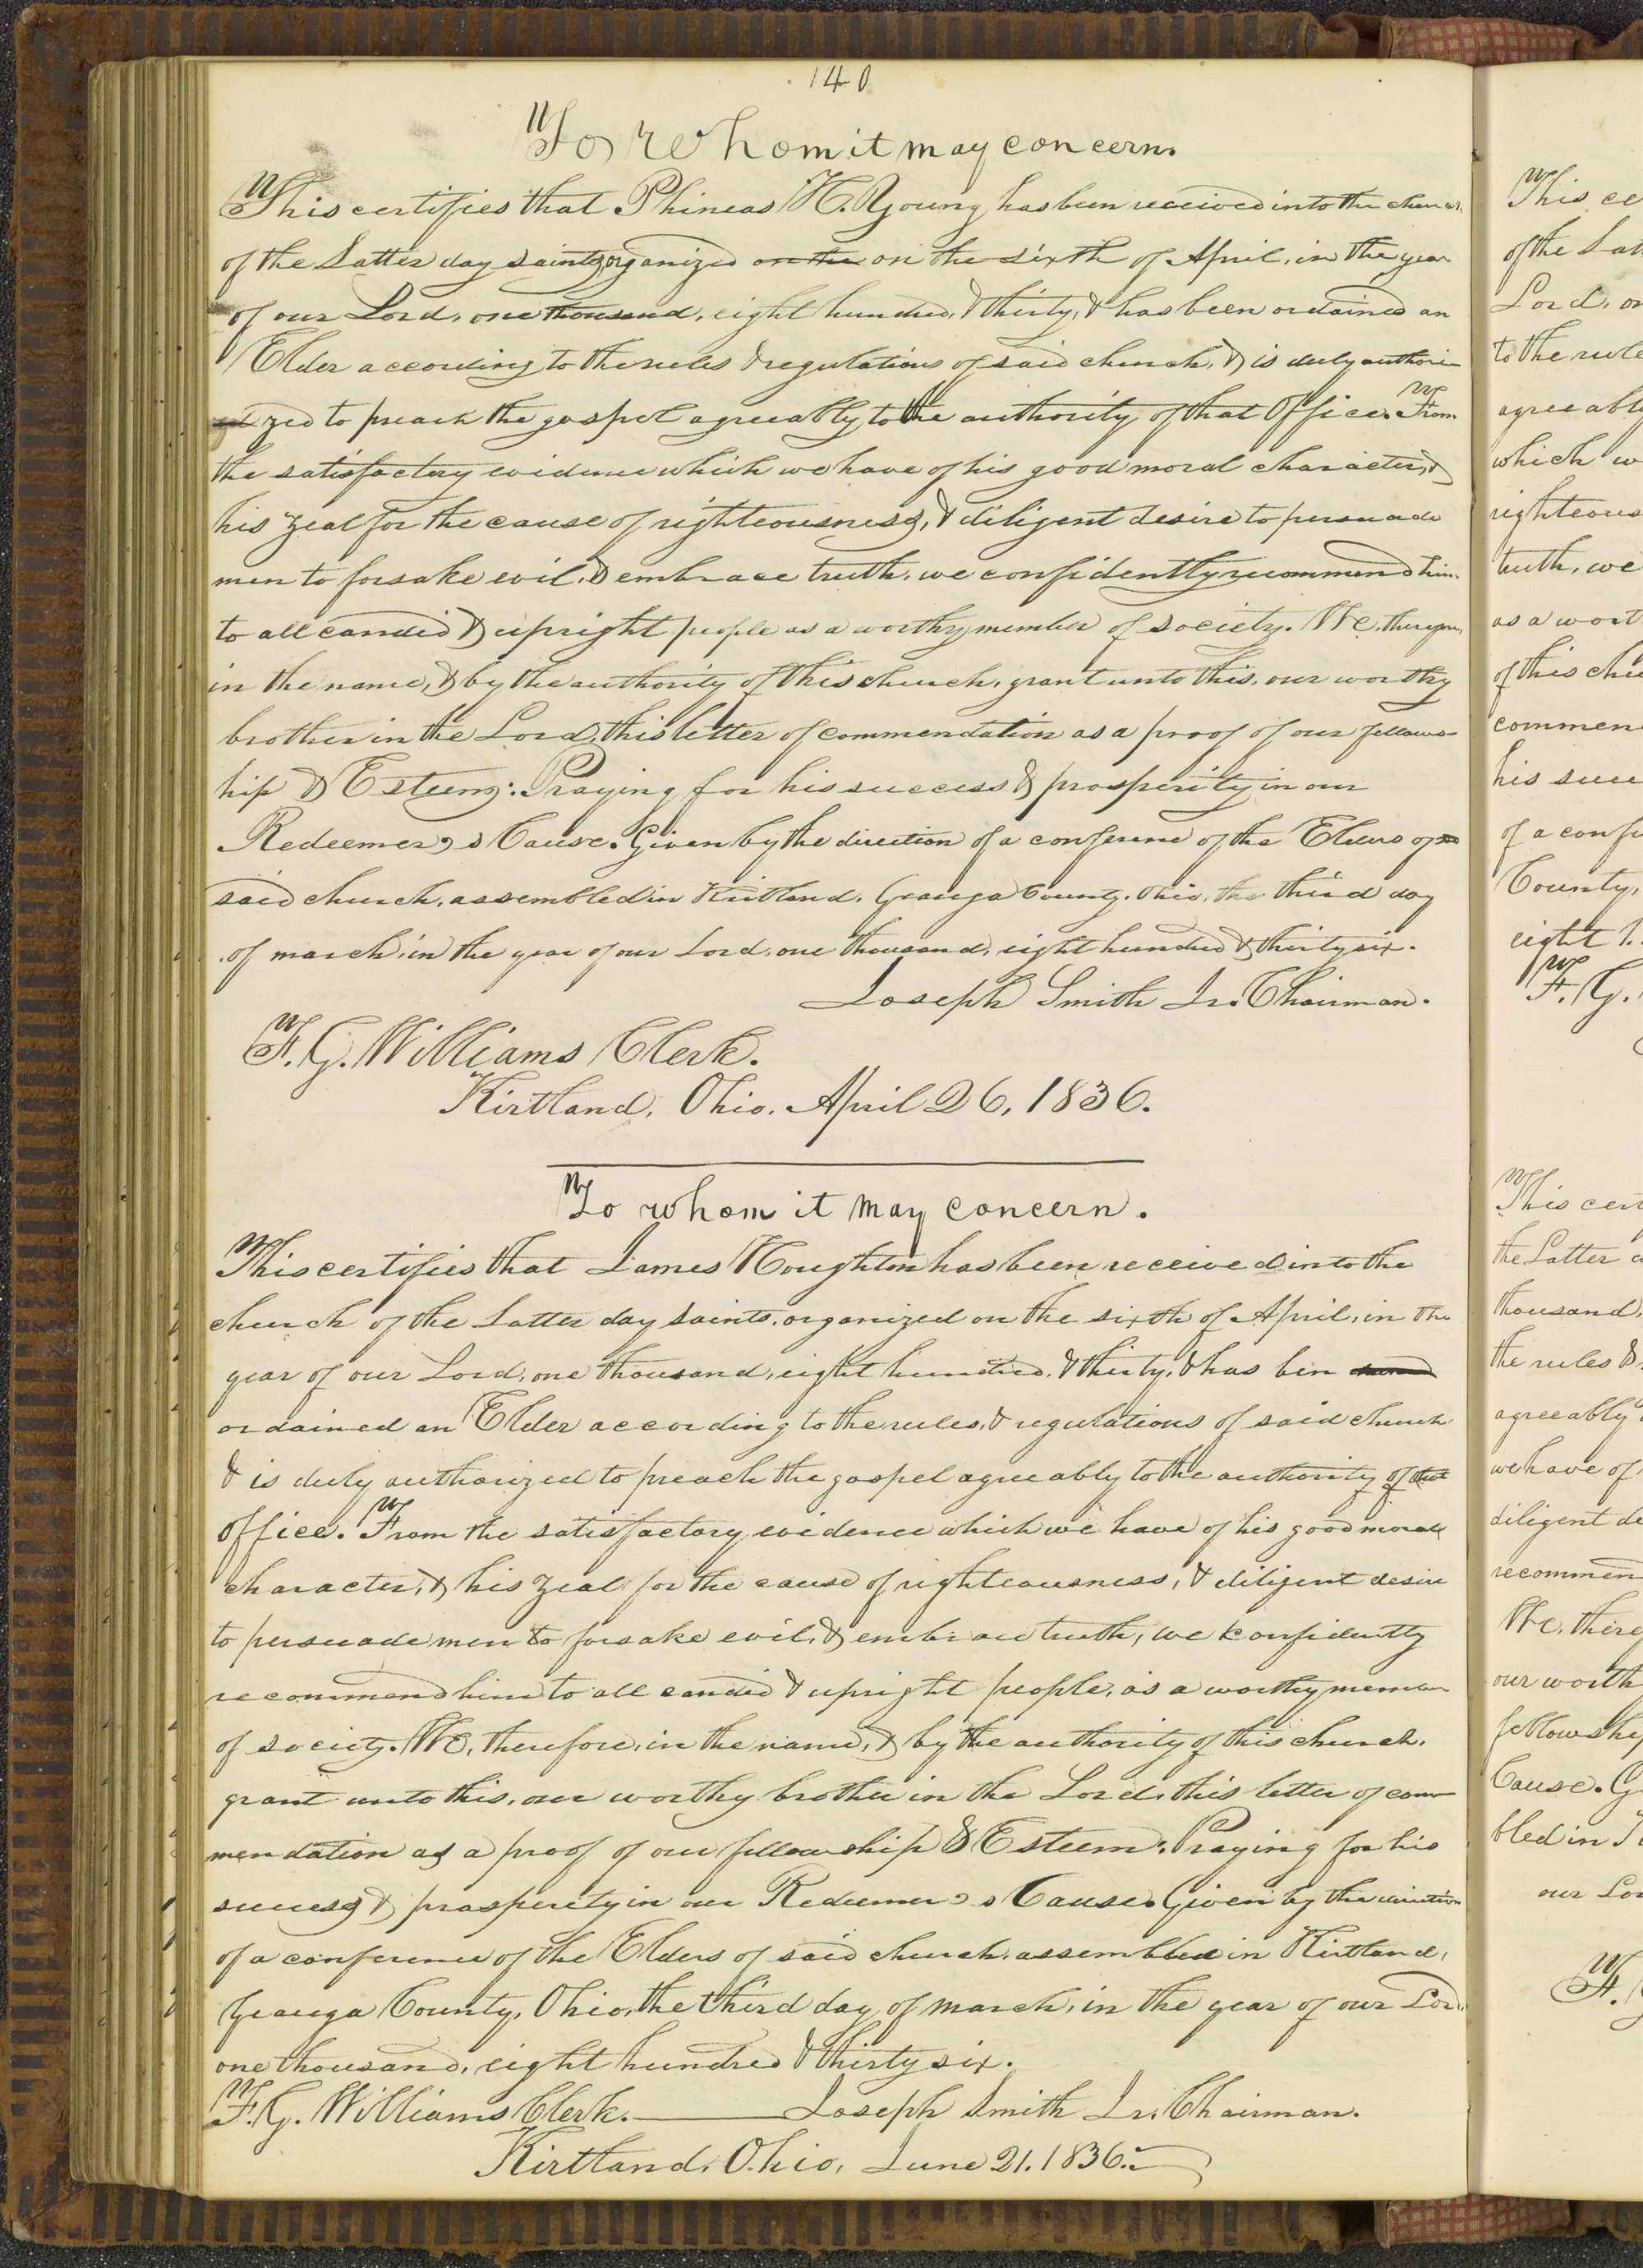 140
To whom it may concern.
This certifies that Phineas H. Young has been received into the church
of the Latter day saints, organized on the on the sixth of April, in the year
of our Lord, one thousand, eight hundred, & thirty, & has been ordained an
Elder according to the rules & regulations of said church, & is duly authori-
zed to preach the gospel agreeably to the authority of that Office. From
the satisfactory evidence which we have of his good moral character, &
his zeal for the cause of righteousness, & diligent desire to persuade
men to forsake evil, & embrace truth, we confidently recommend him
to all candid & upright people as a worthy member of society. We, therefore,
in the name, & by the authority of this church, grant unto this, our worthy
brother in the Lord, this letter of commendation as a proof of our fellows-
hip & Esteem: Praying for his success & prosperity in our
Redeemer,s Cause. Given by the direction of a conference of the Elders of
said church, assembled in Kirtland, Geauga County, Ohio, the third day
of march, in the year of our Lord, one thousand, eight hundred & thirty six.
Joseph Smith Jr. Chairman.
F. G. Williams Clerk.
Kirtland, Ohio, April 26, 1836.
To whom it may concern.
This certifies that James Houghton has been received into the
church of the Latter day saints, organized on the sixth of April, in the
year of our Lord, one thousand, eight hundred, & thirty, & has ben
ordained an Elder according to the rules, & regulations of said church
& is duly authorized to preach the gospel agreeably to the authority of that
office. From the satisfactory evidence which we have of his good moral
character, & his zeal for the cause of righteousness, & diligent desire
to persuade men to forsake evil, & embrace truth, we confidently
recommend him to all candid & upright people, as a worthy member
of society. We, therefore, in the name, & by the authority of this church,
grant unto this, our worthy brother in the Lord, this letter of com-
mendation as a proof of our fellowship & Esteem: Praying for his
success & prosperity in our Redeemer,s Cause. Given by the direction
of a conference of the Elders of said church, assembled in Kirtland,
Geauga County, Ohio, the third day of march, in the year of our Lord,
one thousand, eight hundred & thirty six.
F. G. Williams Clerk. Joseph Smith Jr. Chairman.
Kirtland, Ohio, June 21. 1836.
This ce
of the Lat
Lord, on
to the rule
agreeably
which w
righteous
truth, we
as a wort
of this chu
commen
his succ
of a confe
County,
eight h
F. G.
This cert
the Latter d
thousand,
the rules &
agreeably
we have of
diligent de
recommen
We, there
our worth
fellowship
Cause. G
bled in K
our Lor
F. G